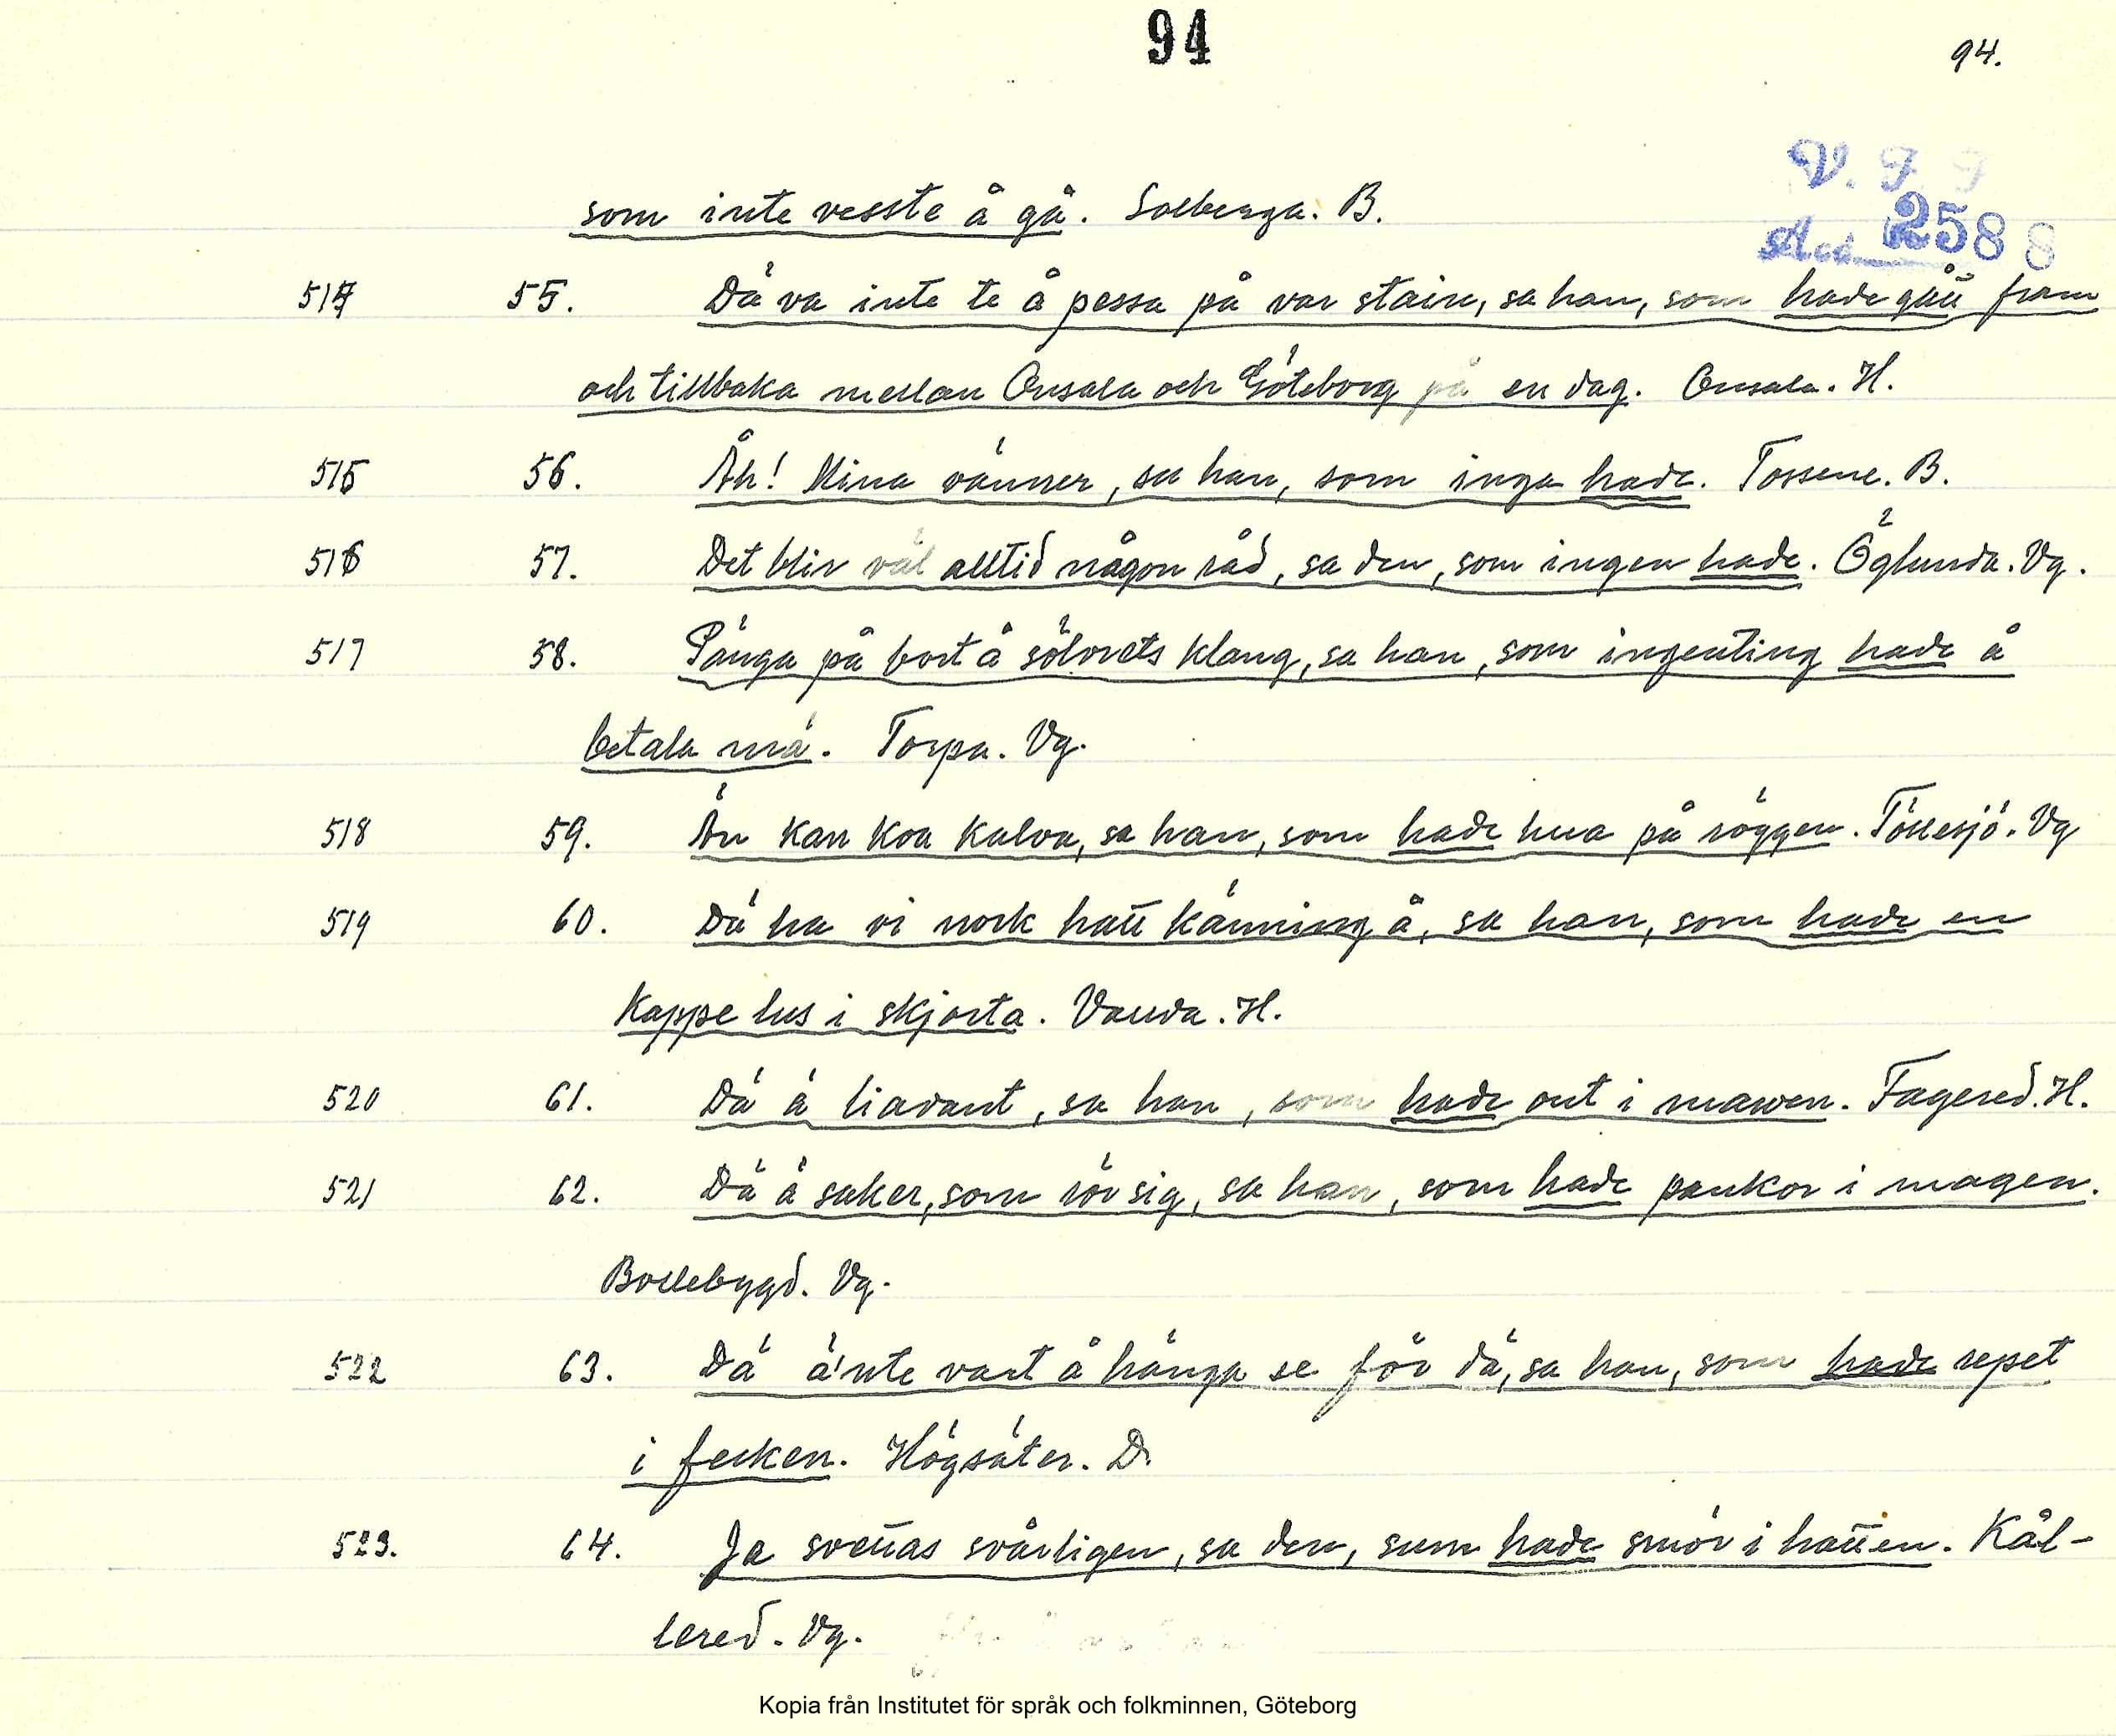 94
94.
V. F. F
Acc 2588
som inte vesste å gå. Solberga. B.
514 55. Dä va inte te å pessa på var stain, sa han, som hade gått fram
och tillbaka mellan Onsala och Göteborg på en dag. Onsala. H.
515 56. Åh! Mina vänner, sa han, som inga hade. Tossene. B.
516 57. Det blir väl alltid någon råd, sa den, som ingen hade. Öglunda. Vg.
517 58. Pänga på bort å sölvrets klang, sa han, som ingenting hade å
betala mä. Torpa. Vg.
518 59. Än kan koa kalva, sa han, som hade hua på röggen. Töllesjö. Vg
519 60. Dä ha vi nock hatt känning å, sa han, som hade en
kappe lus i skjorta. Vanda. H.
520 61. Dä ä liadant, sa han, som hade ont i mawen. Fagered. H.
521 62. Dä ä saker, som rör sig, sa han, som hade pankor i magen.
Bollebygd. Vg.
522 63. Dä ä'nte vart å hänga se för dä, sa han, som hade repet
i fecken. Högsäter. D.
523. 64. Ja svettas svårligen, sa den, sum hade smör i hatten. Kål-
lered. Vg.
Kopia från Institutet för språk och folkminnen, Göteborg